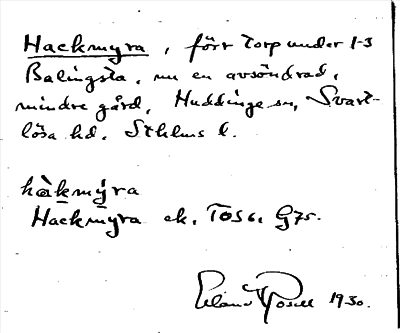 Hackmyra, förr torp under 1-3
Balingsta, nu en avsöndrad,
mindre gård, Huddinge sn, Svart-
lösa hd. Sthlms l.
hàkmy̆ra
Hackmyra ek. T056. G75.
Erland Rosell 1930.